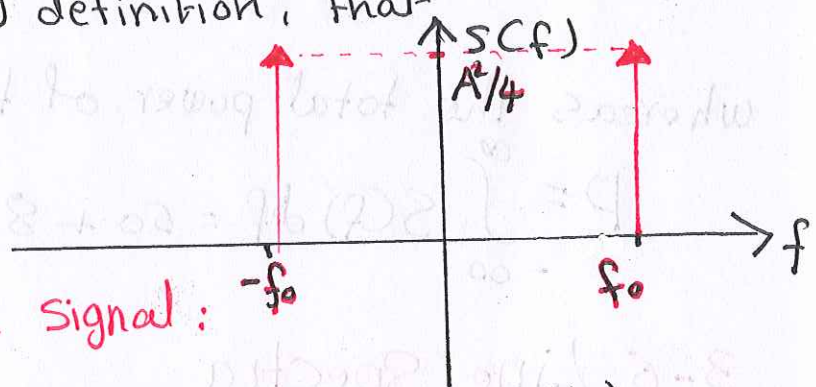 definition, that
S(f)
A²/4
f
-f₀ f₀
Signal: